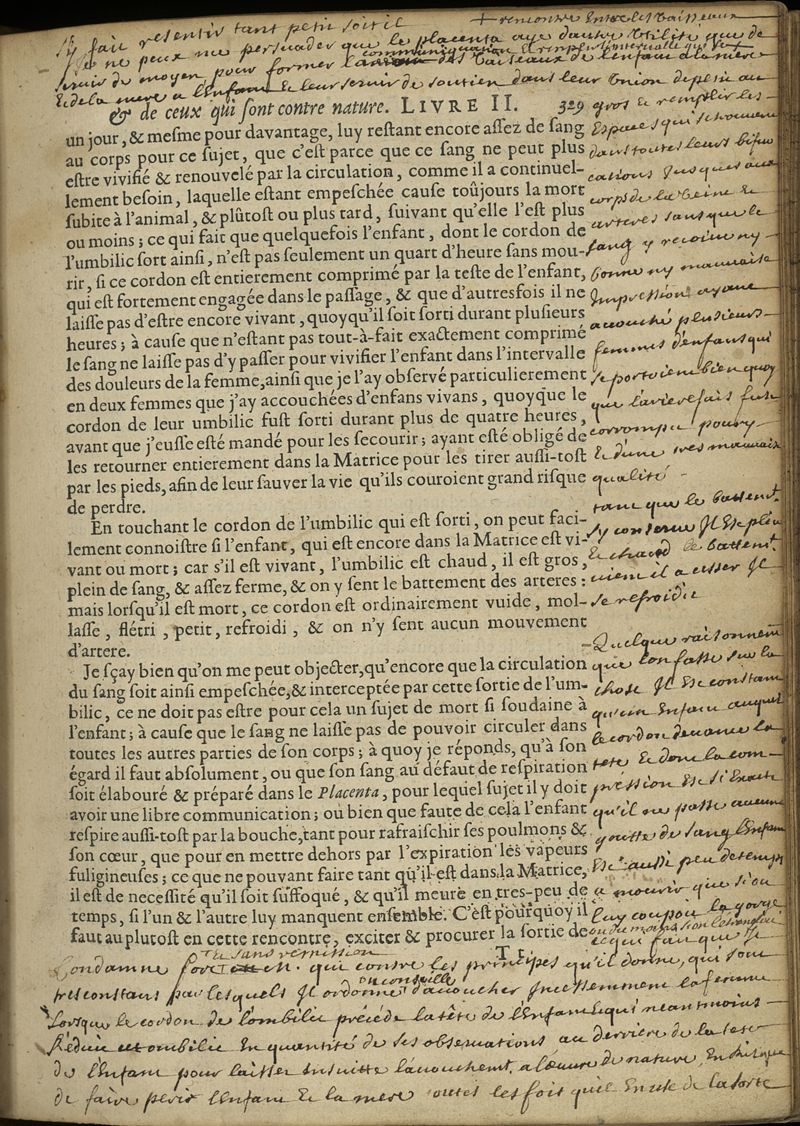 s'y fait resentir tant petit soit il
+ rencontre Entre les Vaisseaux
Je ne peux me persuader que le placenta aye d'autre Utilité que de
servir de moyen pour former la communication des Vaisseaux de l'enfant a la mere
Et de la mere a l'Enfant Et leur servir de soutien dans leur Union depeur au
& de ceux qui ſont contre nature. LIVRE II. 329
un jour, & meſme pour davantage, luy reſtant encore aſſez de ſang
au corps pour ce ſujet, que c'eſt parce que ce ſang ne peut plus
eſtre vivifié & renouvelé par la circulation, comme il a continuel-
lement beſoin, laquelle eſtant empeſchée cauſe toûjours la mort
ſubite à l'animal, & plûtoſt ou plus tard, ſuivant qu'elle l'eſt plus
ou moins ; ce qui fait que quelquefois l'enfant, dont le cordon de
l'umbilic ſort ainſi, n'eſt pas ſeulement un quart d'heure ſans mou-
rir, ſi ce cordon eſt entierement comprimé par la teſte de l'enfant,
qui eſt fortement engagée dans le paſſage, & que d'autresfois il ne
laiſſe pas d'eſtre encore vivant, quoyqu'il ſoit ſorti durant pluſieurs
heures ; à cauſe que n'eſtant pas tout-à-fait exactement comprimé
le ſang ne laiſſe pas d'y paſſer pour vivifier l'enfant dans l'intervalle
des douleurs de la femme, ainſi que je l'ay obſervé particulierement
en deux femmes que j'ay accouchées d'enfans vivans, quoyque le
cordon de leur umbilic fuſt ſorti durant plus de quatre heures,
avant que j'euſſe eſté mandé pour les ſecourir ; ayant eſté obligé de
les retourner entierement dans la Matrice pour les tirer auſſi-toſt
par les pieds, afin de leur ſauver la vie qu'ils couroient grand riſque
de perdre.
En touchant le cordon de l'umbilic qui eſt ſorti, on peut faci-
lement connoiſtre ſi l'enfant, qui eſt encore dans la Matrice eſt vi-
vant ou mort ; car s'il eſt vivant, l'umbilic eſt chaud, il eſt gros,
plein de ſang, & aſſez ferme, & on y ſent le battement des arteres :
mais lorſqu'il eſt mort, ce cordon eſt ordinairement vuide, mol-
laſſe, flétri, petit, refroidi, & on n'y ſent aucun mouvement
d'artere.
Je ſçay bien qu'on me peut objecter, qu'encore que la circulation
du ſang ſoit ainſi empeſchée, & interceptée par cette ſortie de l'um-
bilic, ce ne doit pas eſtre pour cela un ſujet de mort ſi ſoudaine à
l'enfant ; à cauſe que le ſang ne laiſſe pas de pouvoir circuler dans
toutes les autres parties de ſon corps ; à quoy je réponds, qu'à ſon
égard il faut abſolument, ou que ſon ſang au défaut de reſpiration
ſoit élabouré & préparé dans le Placenta, pour lequel ſujet il y doit
avoir une libre communication ; où bien que faute de cela l'enfant
reſpire auſſi-toſt par la bouche, tant pour rafraiſchir ſes poulmons &
ſon cœur, que pour en mettre dehors par l'expiration les vapeurs
fuligineuſes ; ce que ne pouvant faire tant qu'il eſt dans la Matrice,
il eſt de neceſſité qu'il ſoit ſuffoqué, & qu'il meure en tres-peu de
temps, ſi l'un & l'autre luy manquent enſemble. C'eſt pourquoy il
faut au plutoſt en cette rencontre, exciter & procurer la ſortie de
gros Et remplir les
Espaces qui se trouvent
dans toutes leurs bifur
cations Jusques aux
corps de la Veine Et
arteres sans que le
sang y recoive ny
bonne ny mauvaise
Impression ayant
accouché plusieurs
femmes d'enfans qui
se portoient bien quoy
que l'arierefais fust
corrompu pourry
Et d'une tres mauvaise
qualité
tant que le battemt.
s'y conserve Il Est plein
Et chaud le battemt.
vient il a cesser Il
se refroidit
Quelque raisonnemt
que l'on fasse sur la
chose Il Est constant
qu'un Enfant auquel
le cordon devance la
tête Et dont la com-
pression Est si Exacte
qu'il ne passe aucune
goutte de sang l'Enfant
Est aussi peu de temps
a mourir que si on
luy coupoit la gorge
ce qui fait que Je
T t
Condamne fort qui contre les principes qu'il donne, qui sont
tres constans par lesquels Il ordonne d'acoucher Incessemment la femme
Lorsque le cordon de l'ombilic precede la tête de l'Enfant qui neantmoins
Reduit ombilic En quantité de ses observations au derriere de la teste
de l'Enfant pour laisser Ensuitte l'acouchemt. a l'œuvre de nature
de faire perir l'Enfant Et la mere toutes les fois qu'il En use de la sorte